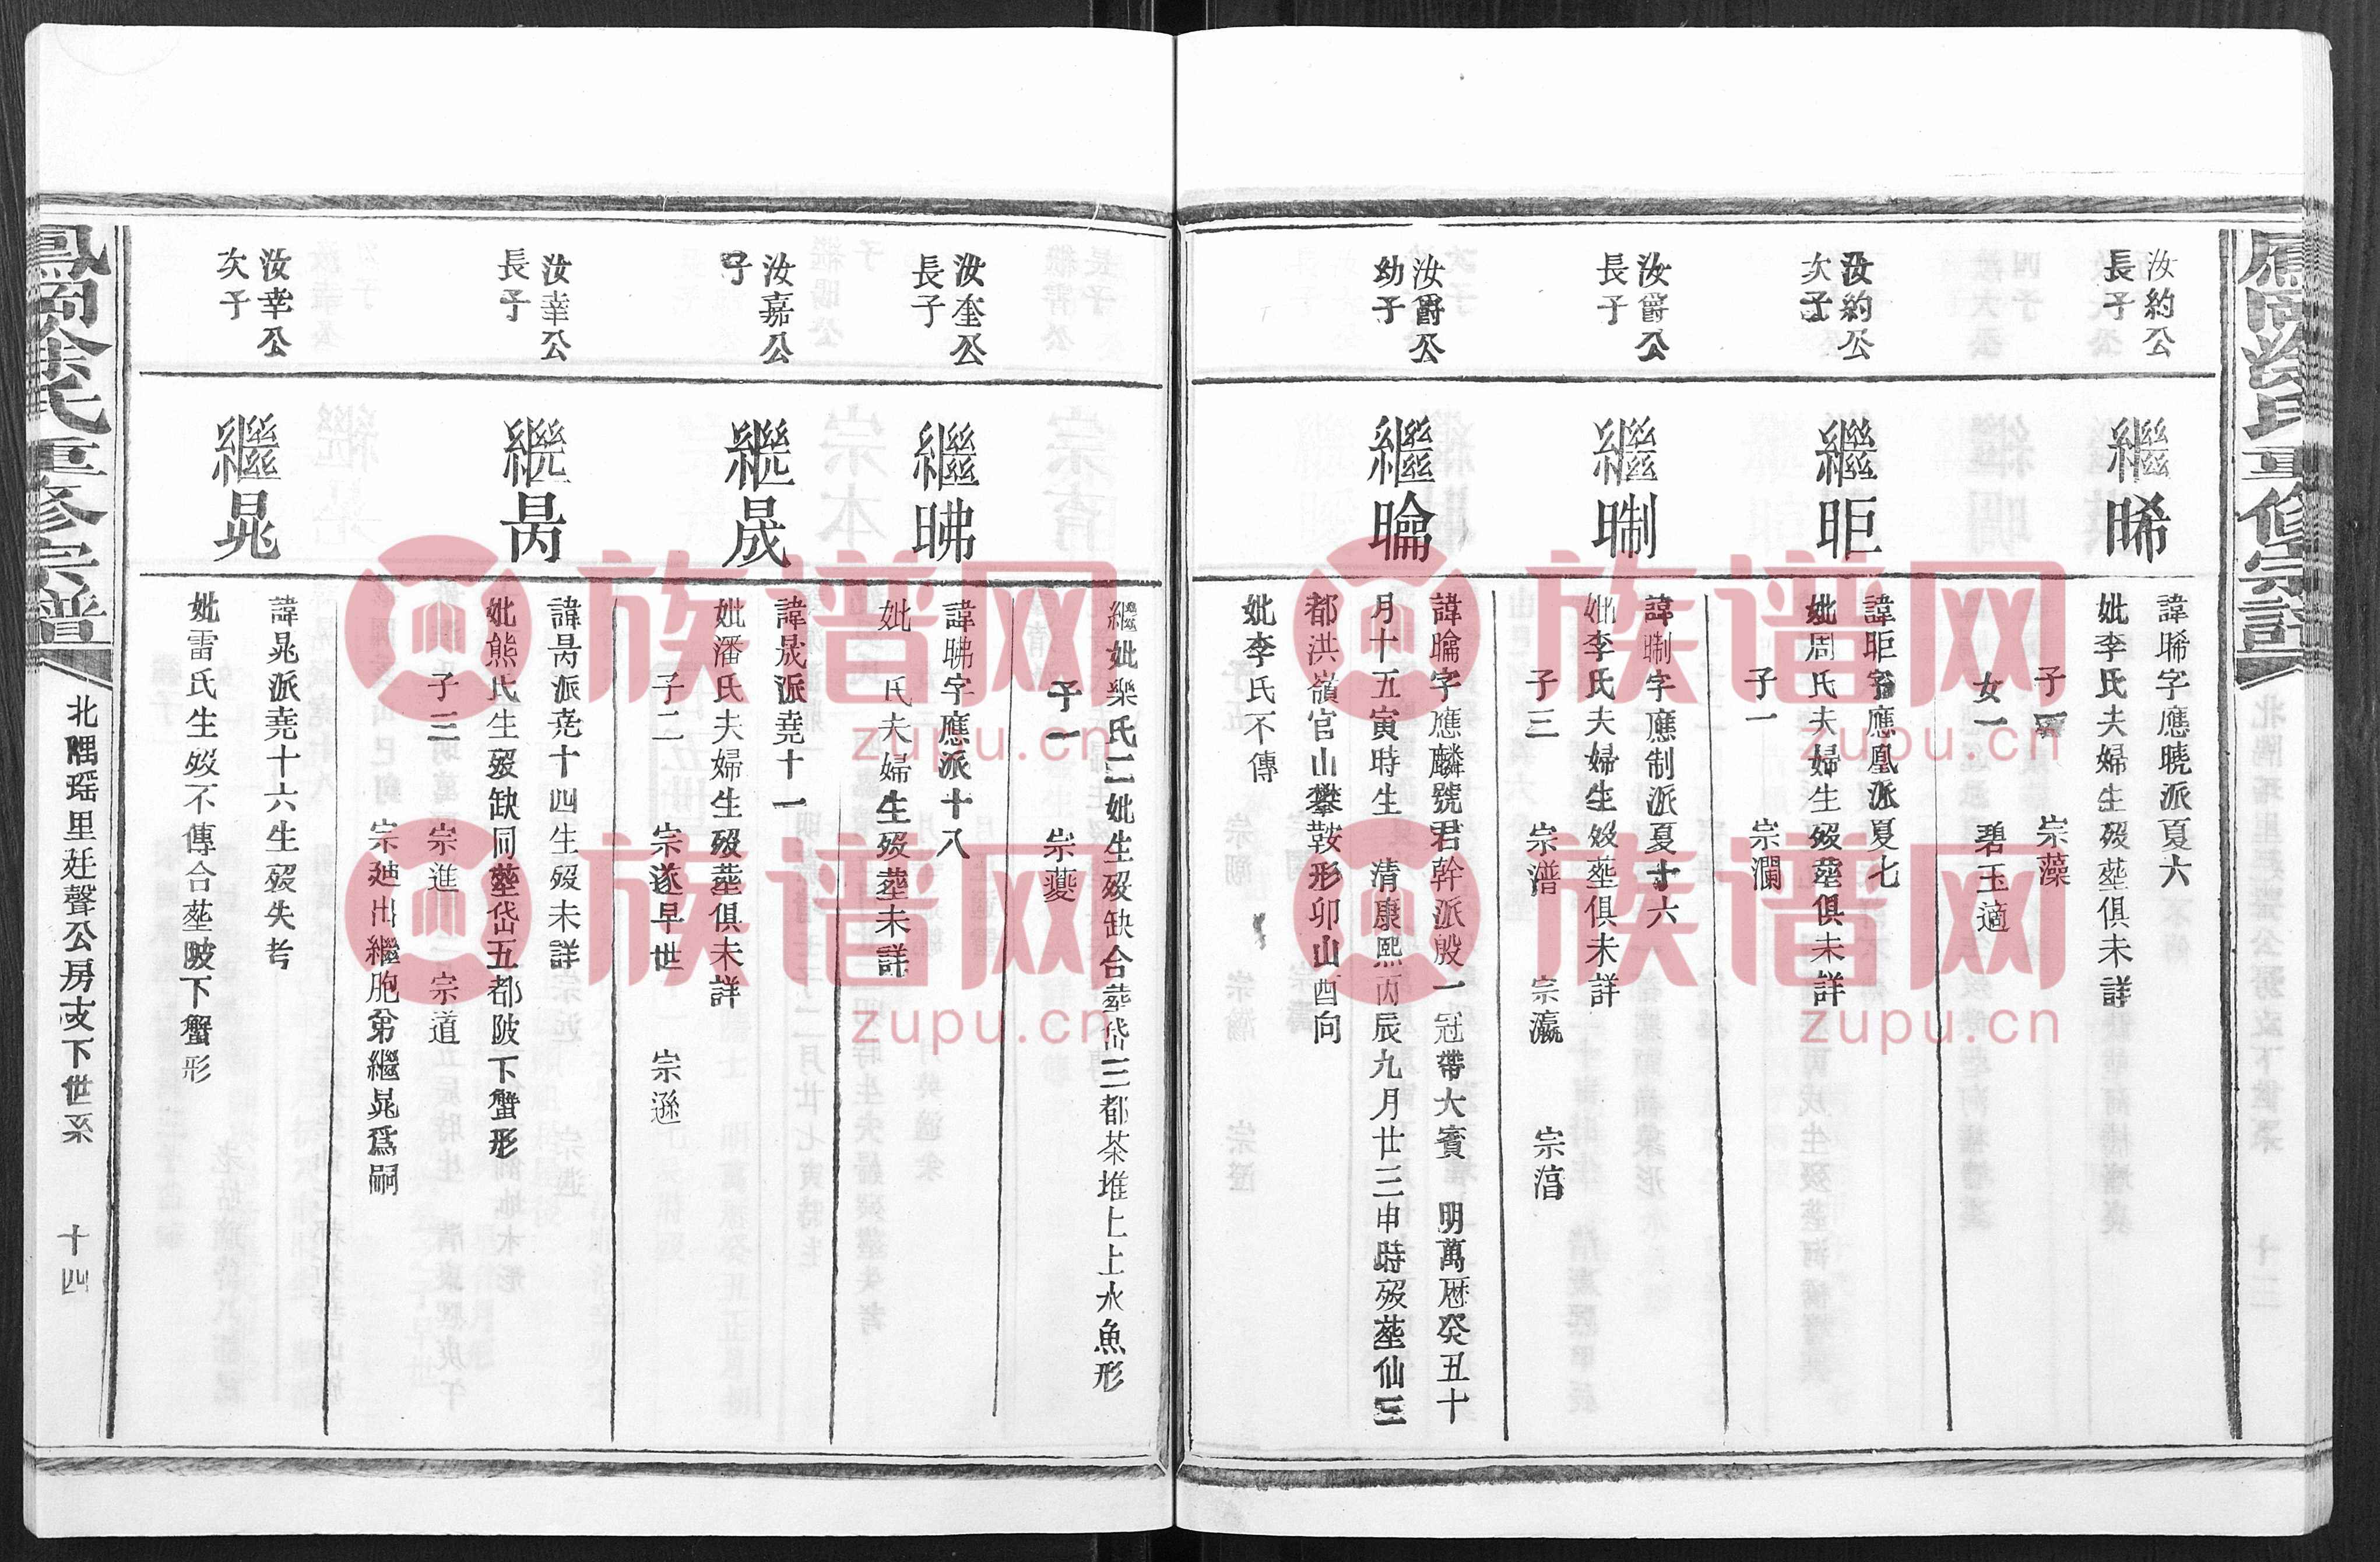 汝約公
長子
繼晞
諱晞字應曉派夏六
妣李氏夫婦生歿塟俱未詳
子一 宗藻
女一 碧玉適
汝約公
次子
繼昛
諱昛字應鳳派夏七
妣周氏夫婦生歿塟俱未詳
子一 宗瀾
汝爵公
長子
諱晣字應制派夏十六
妣李氏夫婦生歿塟俱未詳
子三 宗潽 宗瀛 宗湻
汝爵公
幼子
繼瞮
諱瞮字應麟號君幹派殷一冠帶大賓 明萬厯癸丑十
月十五寅時生 清康熙丙辰九月廿三申時歿塟仙三
都洪嶺官山攀鞍形卯山酉向
妣李氏不傳
繼妣樂氏二妣生歿缺合塟岱三都茶堆上上水魚形
子一 宗夔
汝奎公
長子
繼昲
諱昲字應派十八
妣 氏夫婦生歿塟未詳
汝嘉公
子
繼晟
諱晟派堯十一
妣潘氏夫婦生歿塟俱未詳
子二 宗遂早世 宗遜
汝幸公
長子
繼昺
諱昺派堯十四生歿未詳
妣熊氏生歿缺同塟岱五都陂下蟹形
子三 宗進 宗道
宗廸出繼胞弟繼晁爲嗣
汝幸公
次子
繼晁
諱晁派堯十六生歿失考
妣雷氏生歿不傳合塟陂下蟹形
鳳岡徐氏重修宗譜
北隅瑶里廷聲公房支下世系
十四
族谱网
zupu.cn
族谱网
zupu.cn
族谱网
zupu.cn
族谱网
zupu.cn